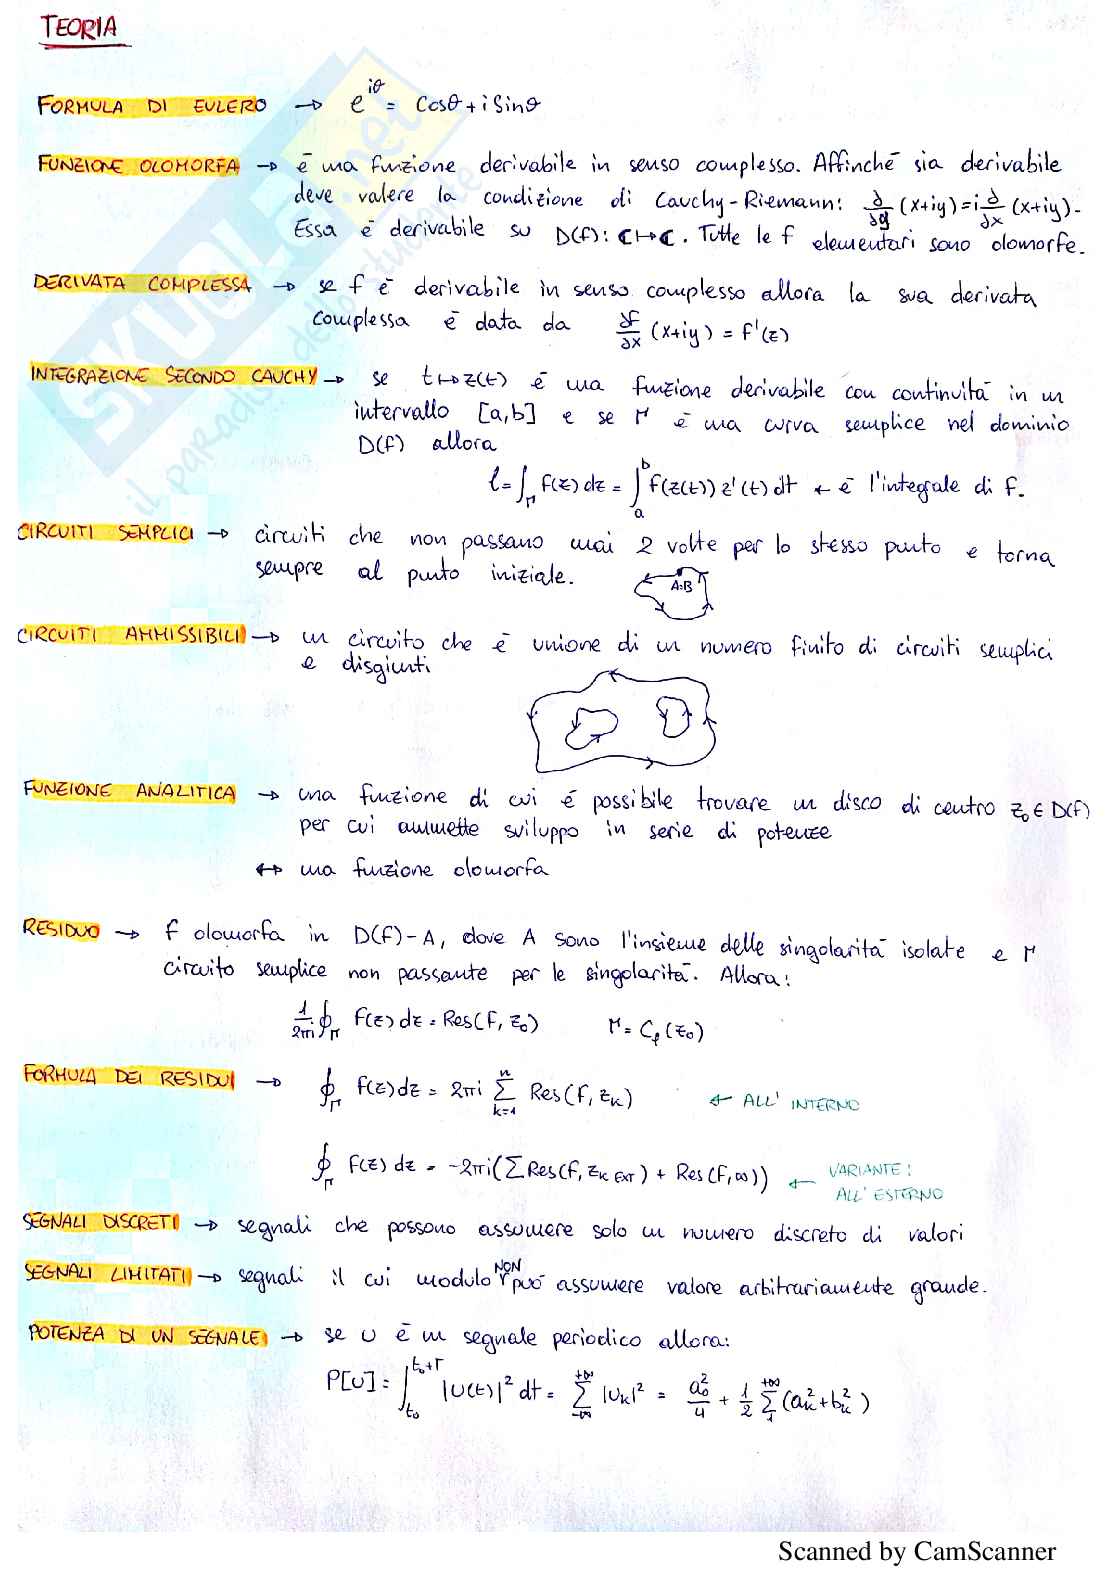 TEORIA
FORMULA DI EULERO → e^{iθ} = Cosθ + i Sinθ
FUNZIONE OLOMORFA → è una funzione derivabile in senso complesso. Affinché sia derivabile
deve valere la condizione di Cauchy-Riemann: ∂/∂y (x+iy) = i ∂/∂x (x+iy).
Essa è derivabile su D(f): ℂ↦ℂ. Tutte le f elementari sono olomorfe.
DERIVATA COMPLESSA → se f è derivabile in senso complesso allora la sua derivata
complessa è data da ∂f/∂x (x+iy) = f'(z)
INTEGRAZIONE SECONDO CAUCHY → se t↦z(t) è una funzione derivabile con continuità in un
intervallo [a,b] e se Γ è una curva semplice nel dominio
D(f) allora
l = ∫_Γ f(z) dz = ∫_a^b f(z(t)) z'(t) dt ← è l'integrale di f.
CIRCUITI SEMPLICI → circuiti che non passano mai 2 volte per lo stesso punto e torna
sempre al punto iniziale.
A=B
CIRCUITI AMMISSIBILI → un circuito che è unione di un numero finito di circuiti semplici
e disgiunti
FUNZIONE ANALITICA → una funzione di cui é possibile trovare un disco di centro z₀ ∈ D(f)
per cui ammette sviluppo in serie di potenze
↔ una funzione olomorfa
RESIDUO → f olomorfa in D(f)-A, dove A sono l'insieme delle singolarità isolate e Γ
circuito semplice non passante per le singolarità. Allora:
1/2πi ∮_Γ f(z) dz = Res(f, z₀) Γ = C_ρ(z₀)
FORMULA DEI RESIDUI → ∮_Γ f(z) dz = 2πi ∑_{k=1}^{n} Res(f, z_k) ← ALL' INTERNO
∮_Γ f(z) dz = -2πi(∑ Res(f, z_{k EXT}) + Res(f,∞)) ← VARIANTE:
ALL' ESTERNO
SEGNALI DISCRETI → segnali che possono assumere solo un numero discreto di valori
SEGNALI LIMITATI → segnali il cui modulo NON può assumere valore arbitrariamente grande.
POTENZA DI UN SEGNALE → se u è un segnale periodico allora:
P[u] = ∫_{t₀}^{t₀+T} |u(t)|² dt = ∑_{-∞}^{+∞} |u_k|² = a₀²/4 + 1/2 ∑_1^{+∞} (a_k² + b_k²)
SKUOLA.net
il paradiso dello studente
Scanned by CamScanner